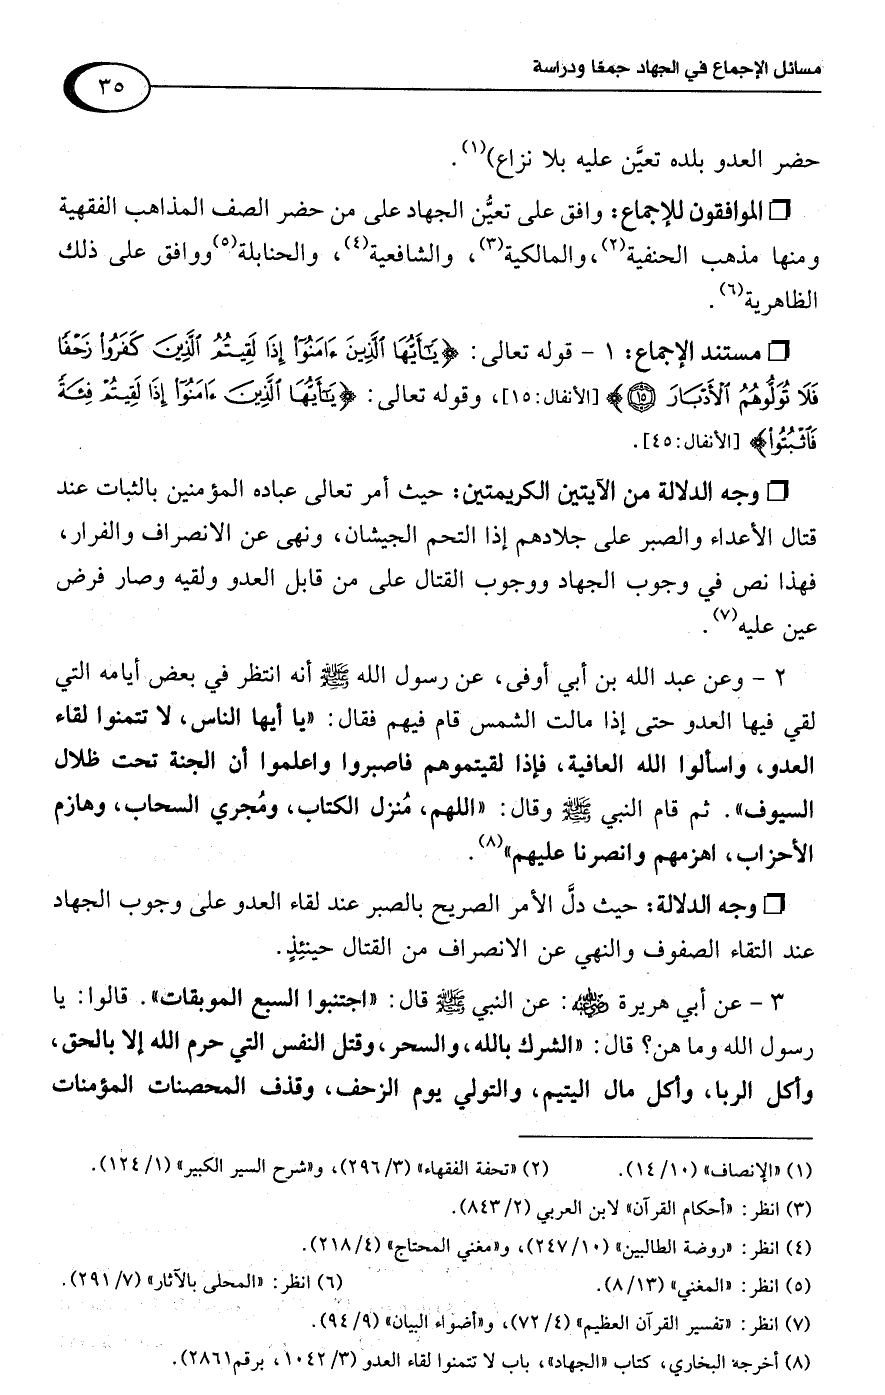 مسائل الإجماع في الجهاد جمعًا ودراسة
٣٥
حضر العدو بلده تعيَّن عليه بلا نزاع)(١).
❒ الموافقون للإجماع: وافق على تعيُّن الجهاد على من حضر الصف المذاهب الفقهية
ومنها مذهب الحنفية(٢)،والمالكية(٣)، والشافعية(٤)، والحنابلة(٥)ووافق على ذلك
الظاهرية(٦).
❒ مستند الإجماع: ١ - قوله تعالى: ﴿يَٰٓأَيُّهَا ٱلَّذِينَ ءَامَنُوٓا۟ إِذَا لَقِيتُمُ ٱلَّذِينَ كَفَرُوا۟ زَحْفًا
فَلَا تُوَلُّوهُمُ ٱلْأَدْبَارَ ۝١٥﴾ [الأنفال:١٥]، وقوله تعالى: ﴿يَٰٓأَيُّهَا ٱلَّذِينَ ءَامَنُوٓا۟ إِذَا لَقِيتُمْ فِئَةً
فَٱثْبُتُوا۟﴾ [الأنفال:٤٥].
❒ وجه الدلالة من الآيتين الكريمتين: حيث أمر تعالى عباده المؤمنين بالثبات عند
قتال الأعداء والصبر على جلادهم إذا التحم الجيشان، ونهى عن الانصراف والفرار،
فهذا نص في وجوب الجهاد ووجوب القتال على من قابل العدو ولقيه وصار فرض
عين عليه(٧).
٢ - وعن عبد الله بن أبي أوفى، عن رسول الله ﷺ أنه انتظر في بعض أيامه التي
لقي فيها العدو حتى إذا مالت الشمس قام فيهم فقال: «يا أيها الناس، لا تتمنوا لقاء
العدو، واسألوا الله العافية، فإذا لقيتموهم فاصبروا واعلموا أن الجنة تحت ظلال
السيوف». ثم قام النبي ﷺ وقال: «اللهم، مُنزل الكتاب، ومُجري السحاب، وهازم
الأحزاب، اهزمهم وانصرنا عليهم»(٨).
❒ وجه الدلالة: حيث دلَّ الأمر الصريح بالصبر عند لقاء العدو على وجوب الجهاد
عند التقاء الصفوف والنهي عن الانصراف من القتال حينئِذٍ.
٣ - عن أبي هريرة رضي الله عنه: عن النبي ﷺ قال: «اجتنبوا السبع الموبقات». قالوا: يا
رسول الله وما هن؟ قال: «الشرك بالله، والسحر، وقتل النفس التي حرم الله إلا بالحق،
وأكل الربا، وأكل مال اليتيم، والتولي يوم الزحف، وقذف المحصنات المؤمنات
(١) «الإنصاف» (١٤/١٠). (٢) «تحفة الفقهاء» (٢٩٦/٣)، و«شرح السير الكبير» (١٢٤/١).
(٣) انظر: «أحكام القرآن» لابن العربي (٨٤٣/٢).
(٤) انظر: «روضة الطالبين» (٢٤٧/١٠)، و«مغني المحتاج» (٢١٨/٤).
(٥) انظر: «المغني» (٨/١٣). (٦) انظر: «المحلى بالآثار» (٢٩١/٧).
(٧) انظر: «تفسير القرآن العظيم» (٧٢/٤)، و«أضواء البيان» (٩٤/٩).
(٨) أخرجه البخاري، كتاب «الجهاد»، باب لا تتمنوا لقاء العدو (١٠٤٢/٣، برقم٢٨٦١).